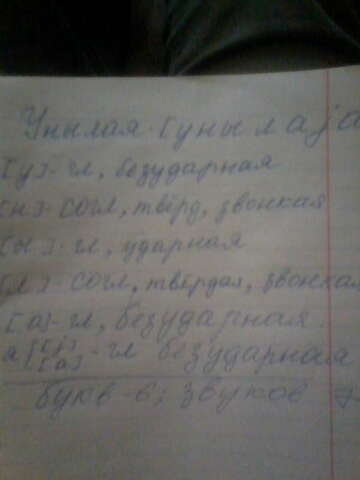 Унылая - [унылаja
[у] - гл, безударная
[н] - согл, твёрд, звонкая
[ы] - гл, ударная
[л] - согл, твёрдая, звонкая
[а] - гл, безударная
я [[j]
[а] - гл безударная
букв - 6; звуков 7